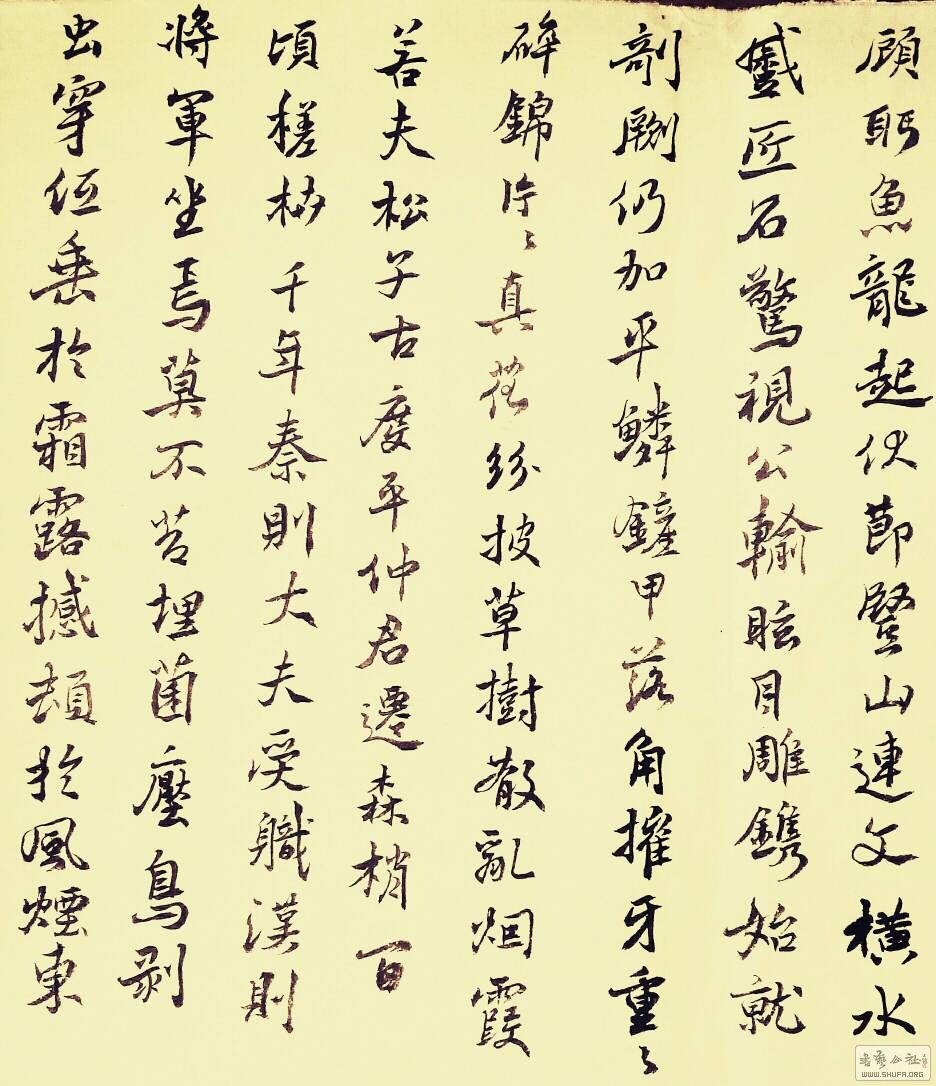 顧眄魚龍起伏節豎山連文橫水
蹙匠石驚視公輸眩目雕鐫始就
剞劂仍加平鱗鏟甲落角摧牙重〻
碎錦片〻真花紛披草樹散亂烟霞
若夫松子古度平仲君遷森梢百
頃槎枿千年秦則大夫受職漢則
將軍坐焉莫不苔埋菌壓鳥剥
虫穿低垂於霜露撼頓於風煙東
WWW.SHUFA.ORG